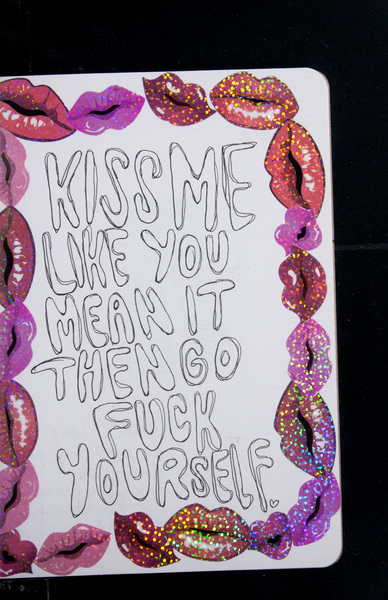 KISS ME
LIKE YOU
MEAN IT
THEN GO
FUCK
YOURSELF.